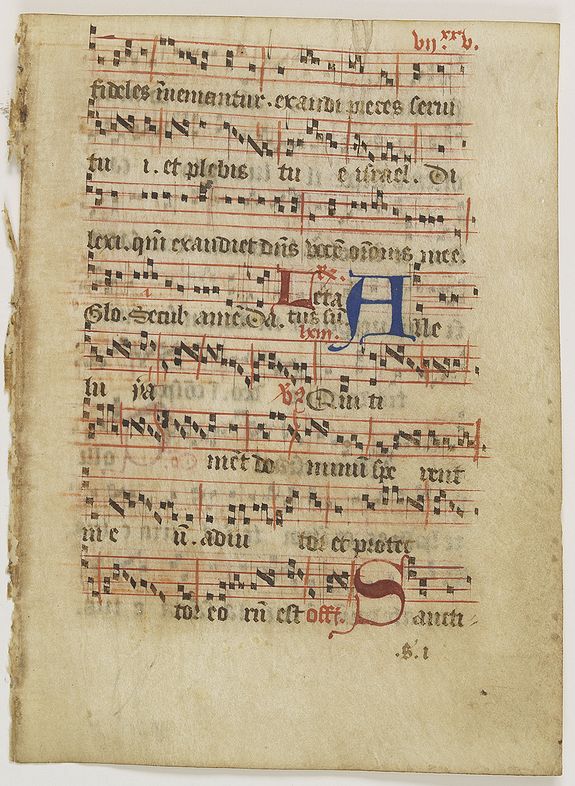 vij. xxv.
fideles īueniantur. exaudi preces serui
tui. et plebis tue israel. Di
lexi. qm̄ exaudiet dn̄s vocē orōnis mee.
Glo. Seculo amē. Da. Leta xx. tus su lxiii. Alle
lu ya ℣ Qui ti
ment do minum spe rent
in e ū. adiu tor et protec
tor eo rū est off. Sancti